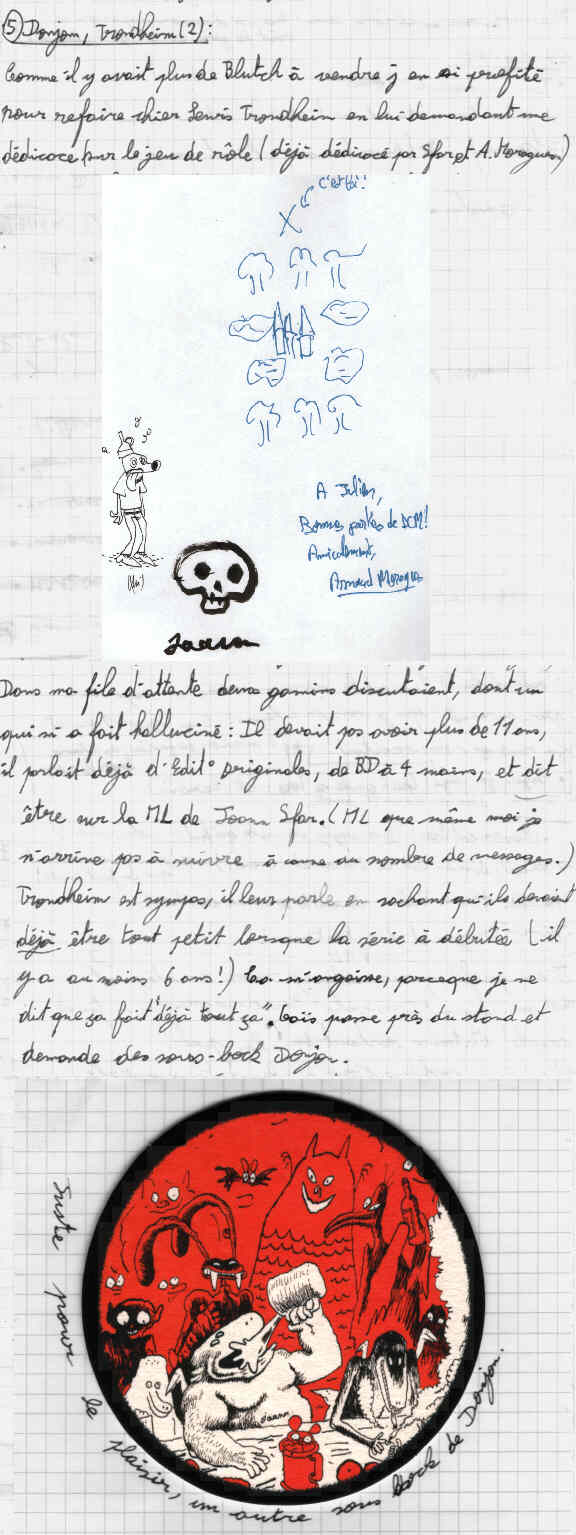 ⑤ Donjon, Trondheim (2):
Comme il y avait plus de Blutch à vendre j en ai profité
pour refaire chier Lewis Trondheim en lui demandant une
dédicace sur le jeu de rôle (déjà dédicacé par Sfar et A. Moragues)
C'est toi!
A Julien,
Bonnes parties de DCM!
Amicalement,
Arnaud Moragues
Joann
Dans ma file d'attente deux gamins discutaient, dont un
qui m'a fait halluciné : Il devait pas avoir plus de 11 ans,
il parlait déjà d'Edit° Originales, de BD à 4 mains, et dit
être sur la ML de Joann Sfar. (ML que même moi je
n'arrive pas à suivre à cause du nombre de messages.)
Trondheim est sympas, il leur parle en sachant qu'ils devaient
déjà être tout petit lorsque la série à débutée (il
y a au moins 6 ans!) Ca m'angoisse, parceque je me
dit que ça fait "déjà tout ça". Loïs passe près du stand et
demande des sous-bock Donjon.
Joann
Juste pour le plaisir, un autre sous bock de Donjon.